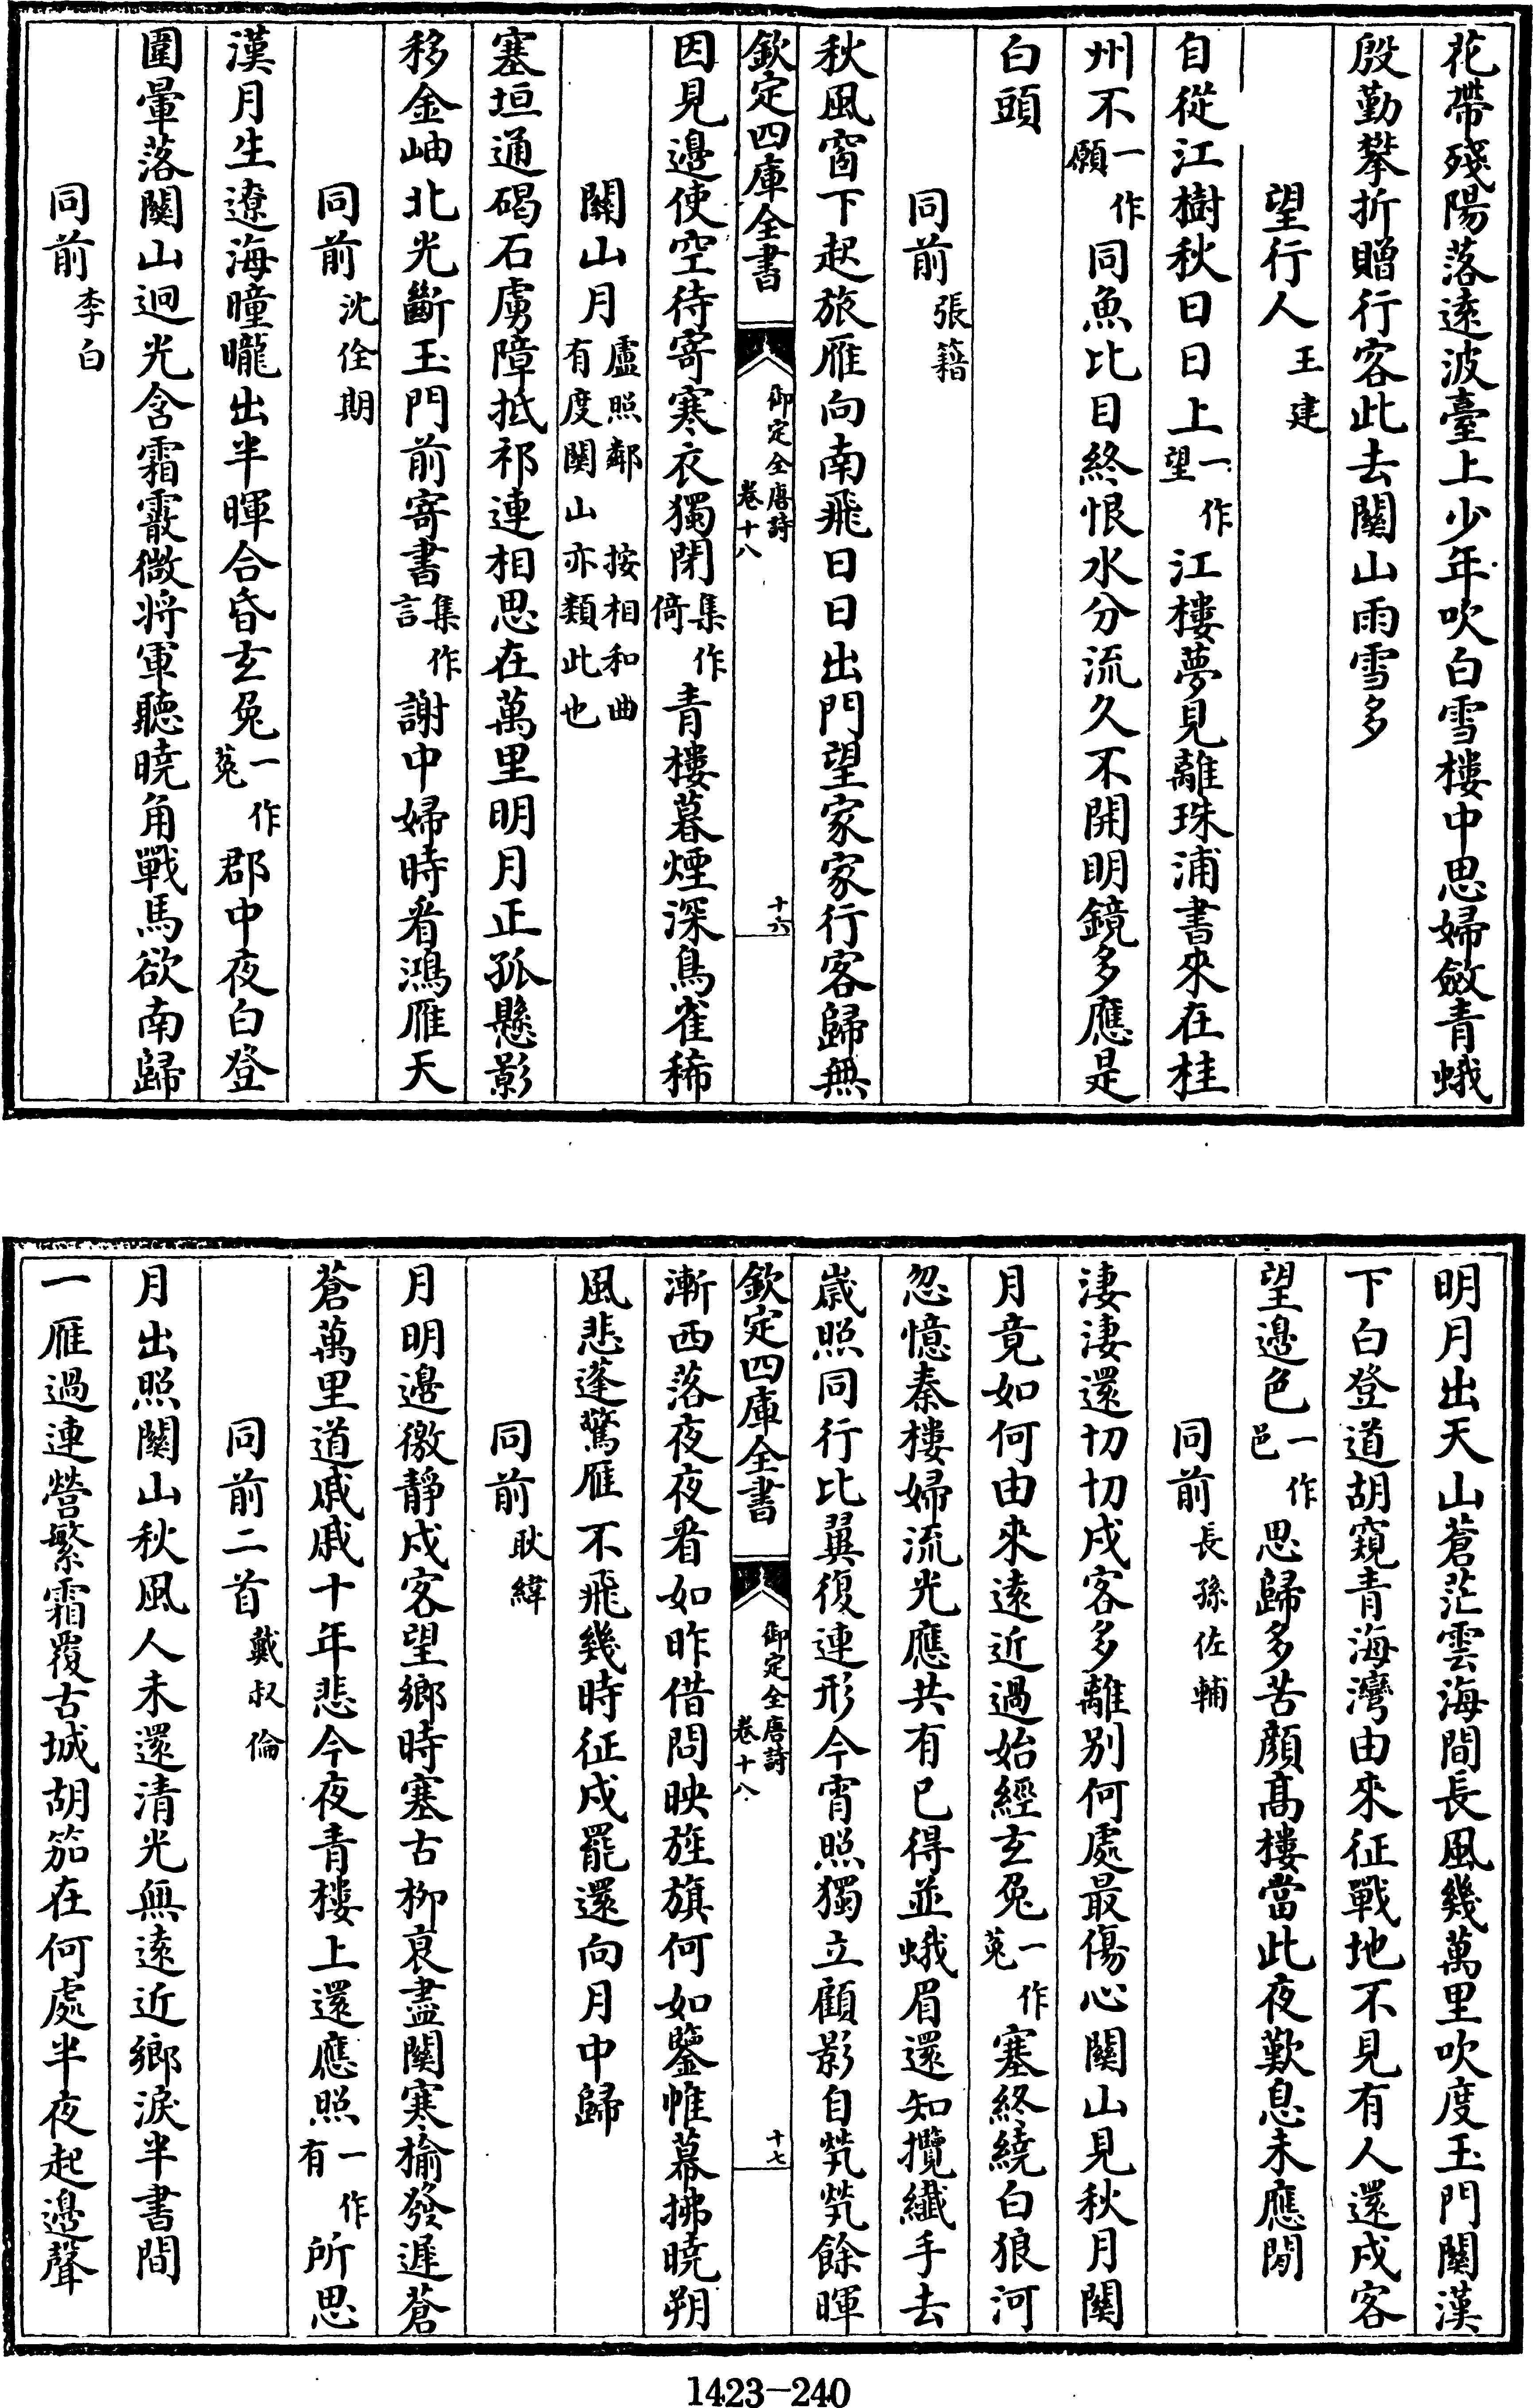 花帶殘陽落遠波臺上少年吹白雪樓中思婦斂青蛾
殷勤攀折贈行客此去關山雨雪多
望行人王建
自從江樹秋日日上一作望江樓夢見離珠浦書來在桂
州不一作願同魚比目終恨水分流久不開明鏡多應是
白頭
同前張籍
秋風窗下起旅雁向南飛日日出門望家家行客歸無
欽定四庫全書 御定全唐詩卷十八 十六
因見邊使空待寄寒衣獨閉集作倚青樓暮煙深鳥雀稀
關山月盧照鄰 按相和曲有度關山亦類此也
塞垣通碣石虜障抵祁連相思在萬里明月正孤懸影
移金岫北光斷玉門前寄書集作言謝中婦時看鴻雁天
同前沈佺期
漢月生遼海曈曨出半暉合昏玄兔一作菟郡中夜白登
圍暈落關山迥光含霜霰微將軍聽曉角戰馬欲南歸
同前李白
明月出天山蒼茫雲海間長風幾萬里吹度玉門關漢
下白登道胡窺青海灣由來征戰地不見有人還戍客
望邊色一作邑思歸多苦顏高樓當此夜歎息未應閒
同前長孫佐輔
淒淒還切切戍客多離別何處最傷心關山見秋月關
月竟如何由來遠近過始經玄兔一作菟塞終繞白狼河
忽憶秦樓婦流光應共有已得並蛾眉還知攬纖手去
歲照同行比翼復連形今宵照獨立顧影自煢煢餘暉
欽定四庫全書 御定全唐詩卷十八 十七
漸西落夜夜看如昨借問映旌旗何如鑒帷幕拂曉朔
風悲蓬驚雁不飛幾時征戍罷還向月中歸
同前耿緯
月明邊徼靜戍客望鄉時塞古柳衰盡關寒榆發遲蒼
蒼萬里道戚戚十年悲今夜青樓上還應照一作有所思
同前二首戴叔倫
月出照關山秋風人未還清光無遠近鄉淚半書間
一雁過連營繁霜覆古城胡笳在何處半夜起邊聲
1423—240